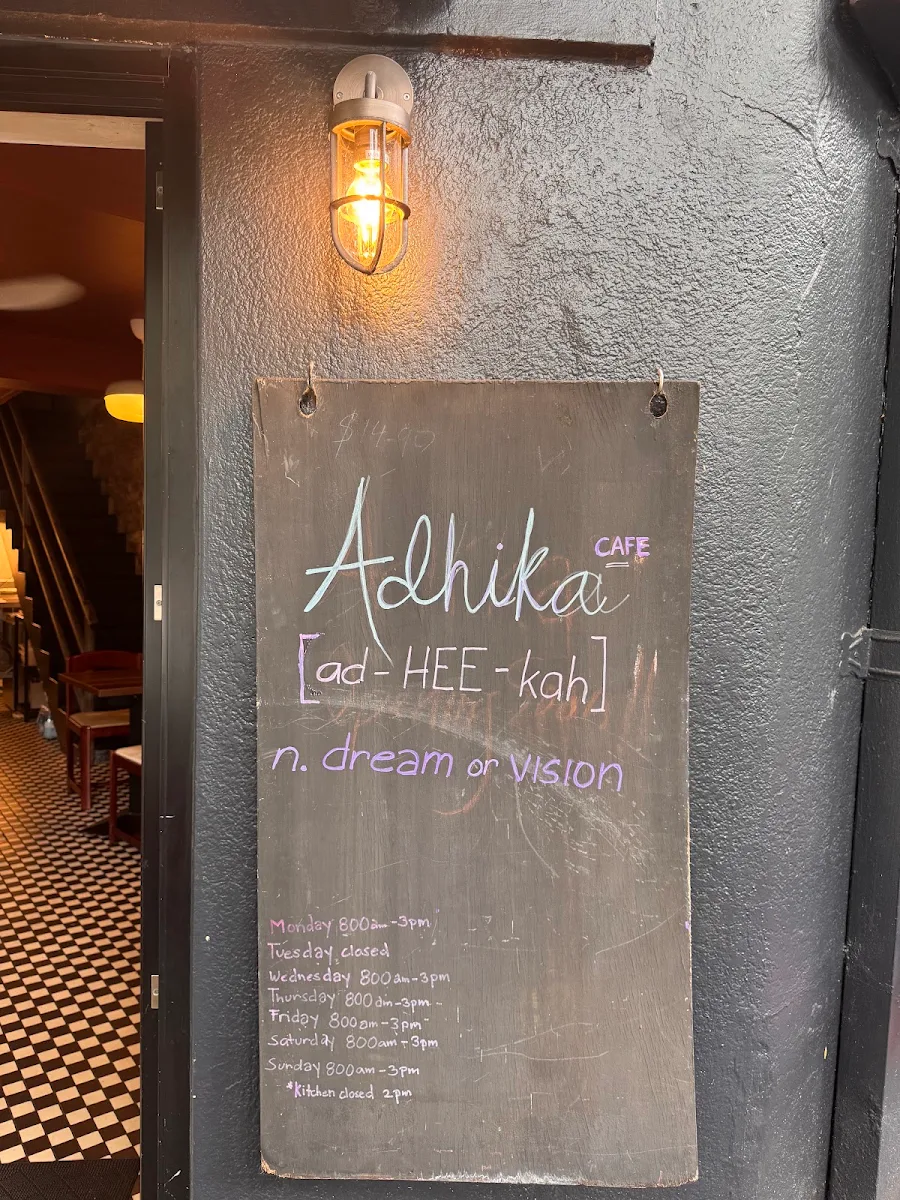 $14.90
Adhika CAFE
[ad-HEE-kah]
n. dream or vision
Monday 800am-3pm
Tuesday closed
Wednesday 800am-3pm
Thursday 800am-3pm
Friday 800am-3pm
Saturday 800am-3pm
Sunday 800am-3pm
*Kitchen closed 2pm